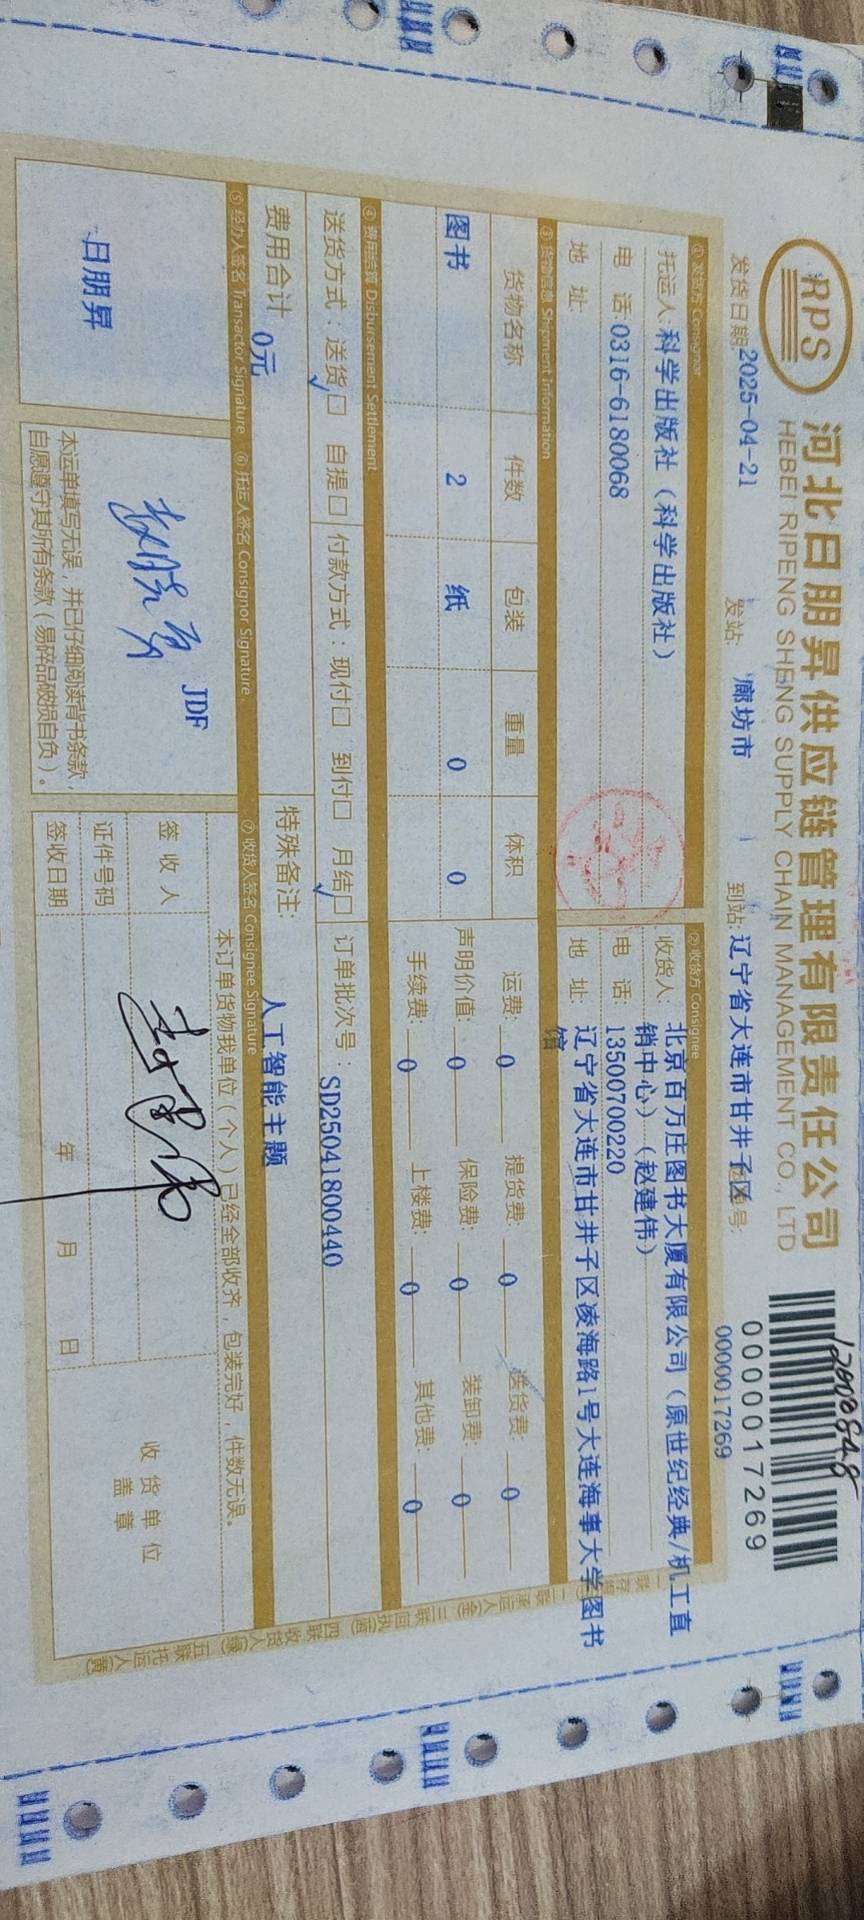 RPS
河北日朋昇供应链管理有限责任公司
HEBEI RIPENG SHENG SUPPLY CHAIN MANAGEMENT CO., LTD
1200848
0000017269
0000017269
发货日期: 2025-04-21 发站: 廊坊市 到站: 辽宁省大连市甘井子区 号:
① 发货方 Consignor
托运人: 科学出版社（科学出版社）
电 话: 0316-6180068
地 址:
② 收货方 Consignee
收货人: 北京百万庄图书大厦有限公司（原世纪经典/机工直
销中心）（赵建伟）
电 话: 13500700220
地 址: 辽宁省大连市甘井子区凌海路1号大连海事大学图书
馆
③ 货物信息 Shipment Information
货物名称 件数 包装 重量 体积
图书 2 纸 0 0
运费: 0 提货费: 0 送货费: 0
声明价值: 0 保险费: 0 装卸费: 0
手续费: 0 上楼费: 0 其他费: 0
④ 费用结算 Disbursement Settlement
送货方式：送货☑ 自提□ 付款方式：现付□ 到付□ 月结☑ 订单批次号：SD25041800440
费用合计 0元 特殊备注: 人工智能主题
⑤ 经办人签名 Transactor Signature
日朋昇
⑥ 托运人签名 Consignor Signature
JDF
本运单填写无误，并已仔细阅读背书条款，
自愿遵守其所有条款（易碎品破损自负）。
⑦ 收货人签名 Consignee Signature
本订单货物我单位（个人）已经全部收齐，包装完好，件数无误。
签 收 人
证件号码
签收日期 年 月 日
收 货 单 位
盖 章